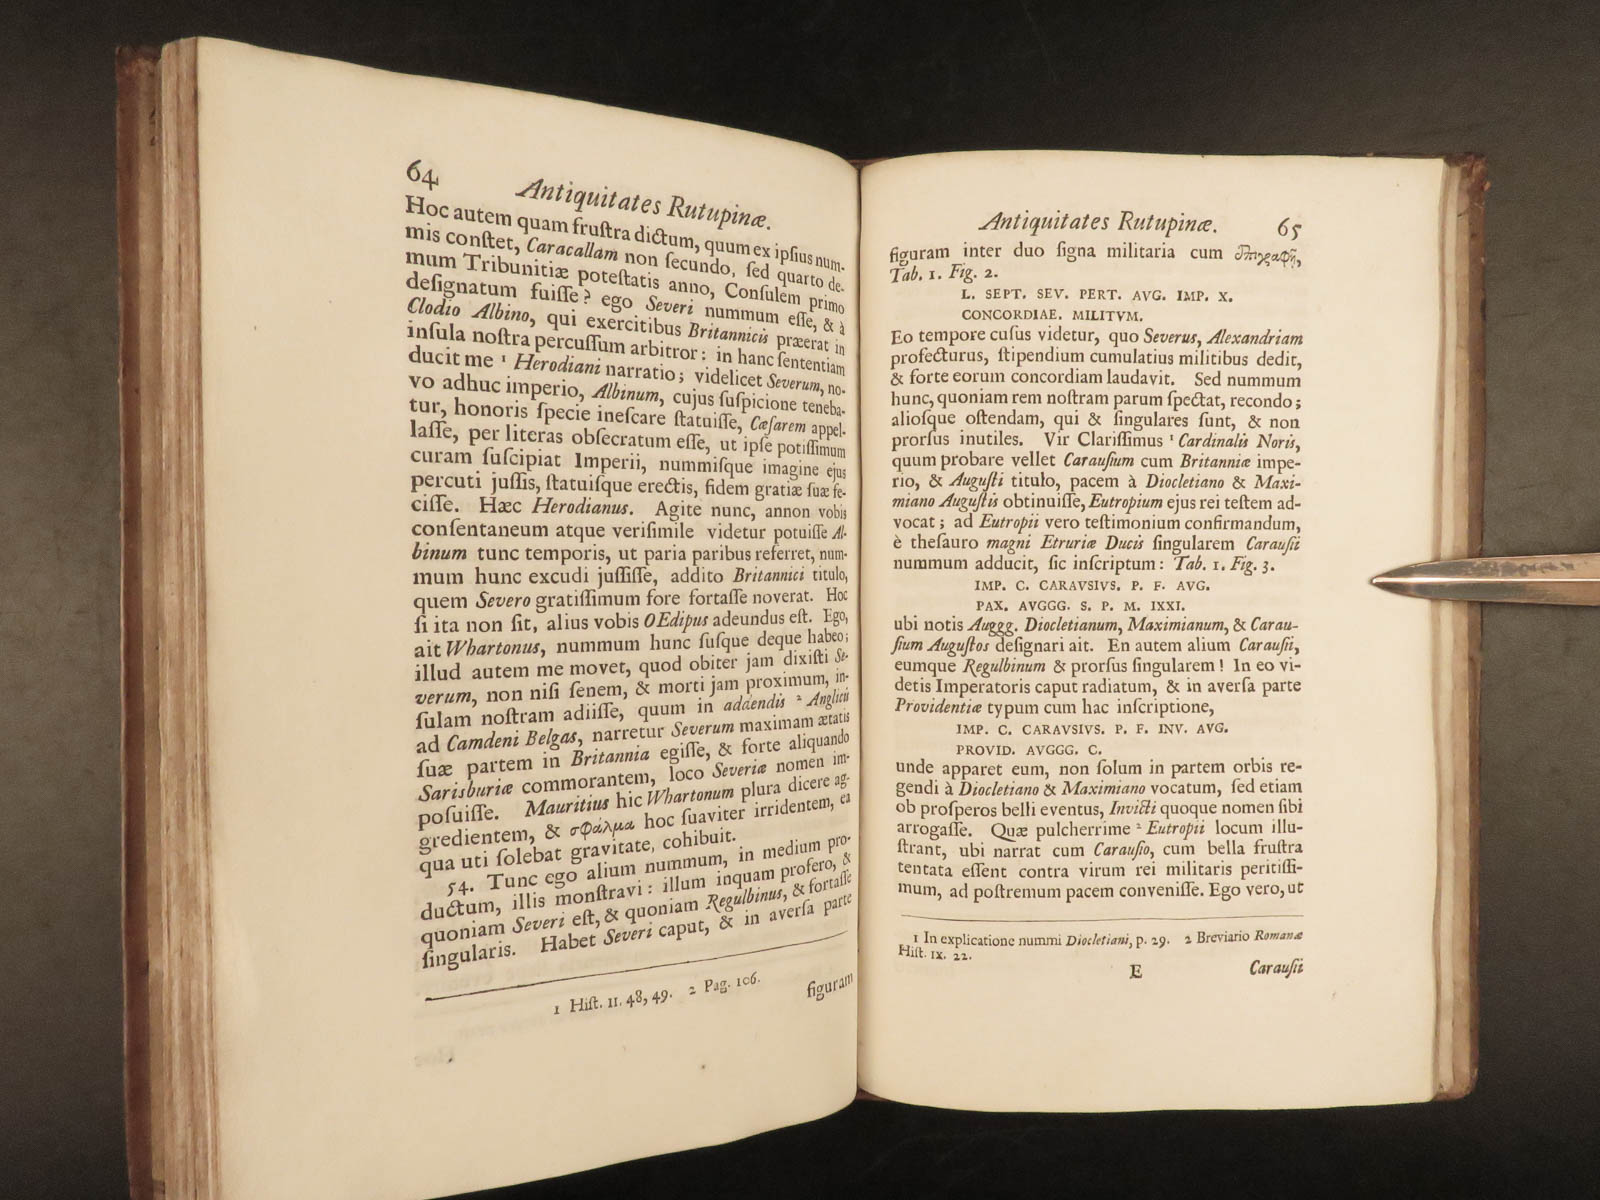 64
Antiquitates Rutupinæ.
Hoc autem quam fruſtra dictum, quum ex ipſius num-
mis conſtet, Caracallam non ſecundo, ſed quarto de-
mum Tribunitiæ poteſtatis anno, Conſulem primo
deſignatum fuiſſe? ego Severi nummum eſſe, & à
Clodio Albino, qui exercitibus Britannicis præerat in
inſula noſtra percuſſum arbitror: in hanc ſententiam
ducit me 1 Herodiani narratio; videlicet Severum, no-
vo adhuc imperio, Albinum, cujus ſuſpicione teneba-
tur, honoris ſpecie ineſcare ſtatuiſſe, Cæſarem appel-
laſſe, per literas obſecratum eſſe, ut ipſe potiſſimum
curam ſuſcipiat Imperii, nummiſque imagine ejus
percuti juſſis, ſtatuiſque erectis, fidem gratiæ ſuæ fe-
ciſſe. Hæc Herodianus. Agite nunc, annon vobis
conſentaneum atque veriſimile videtur potuiſſe Al-
binum tunc temporis, ut paria paribus referret, num-
mum hunc excudi juſſiſſe, addito Britannici titulo,
quem Severo gratiſſimum fore fortaſſe noverat. Hoc
ſi ita non ſit, alius vobis OEdipus adeundus eſt. Ego,
ait Whartonus, nummum hunc ſuſque deque habeo;
illud autem me movet, quod obiter jam dixiſti Se-
verum, non niſi ſenem, & morti jam proximum, in-
ſulam noſtram adiiſſe, quum in addendis 2 Anglicis
ad Camdeni Belgas, narretur Severum maximam ætatis
ſuæ partem in Britannia egiſſe, & forte aliquando
Sarisburiæ commorantem, loco Severiæ nomen im-
poſuiſſe. Mauritius hic Whartonum plura dicere ag-
gredientem, & σφάλμα hoc ſuaviter irridentem, ea
qua uti ſolebat gravitate, cohibuit.
54. Tunc ego alium nummum, in medium pro-
ductum, illis monſtravi: illum inquam profero, &
quoniam Severi eſt, & quoniam Regulbinus, & fortaſſe
ſingularis. Habet Severi caput, & in averſa parte
1 Hiſt. II. 48, 49. 2 Pag. 106.
figuram
Antiquitates Rutupinæ.
65
figuram inter duo ſigna militaria cum ἐπιγραφῇ,
Tab. 1. Fig. 2.
L. SEPT. SEV. PERT. AVG. IMP. X.
CONCORDIAE. MILITVM.
Eo tempore cuſus videtur, quo Severus, Alexandriam
profecturus, ſtipendium cumulatius militibus dedit,
& forte eorum concordiam laudavit. Sed nummum
hunc, quoniam rem noſtram parum ſpectat, recondo;
alioſque oſtendam, qui & ſingulares ſunt, & non
prorſus inutiles. Vir Clariſſimus 1 Cardinalis Noris,
quum probare vellet Carauſium cum Britanniæ impe-
rio, & Auguſti titulo, pacem à Diocletiano & Maxi-
miano Auguſtis obtinuiſſe, Eutropium ejus rei teſtem ad-
vocat; ad Eutropii vero teſtimonium confirmandum,
è theſauro magni Etruriæ Ducis ſingularem Carauſii
nummum adducit, ſic inſcriptum: Tab. 1. Fig. 3.
IMP. C. CARAVSIVS. P. F. AVG.
PAX. AVGGG. S. P. M. IXXI.
ubi notis Auggg. Diocletianum, Maximianum, & Carau-
ſium Auguſtos deſignari ait. En autem alium Carauſii,
eumque Regulbinum & prorſus ſingularem! In eo vi-
detis Imperatoris caput radiatum, & in averſa parte
Providentiæ typum cum hac inſcriptione,
IMP. C. CARAVSIVS. P. F. INV. AVG.
PROVID. AVGGG. C.
unde apparet eum, non ſolum in partem orbis re-
gendi à Diocletiano & Maximiano vocatum, ſed etiam
ob proſperos belli eventus, Invicti quoque nomen ſibi
arrogaſſe. Quæ pulcherrime 2 Eutropii locum illu-
ſtrant, ubi narrat cum Carauſio, cum bella fruſtra
tentata eſſent contra virum rei militaris peritiſſi-
mum, ad poſtremum pacem conveniſſe. Ego vero, ut
1 In explicatione nummi Diocletiani, p. 29. 2 Breviario Romanæ
Hiſt. IX. 22.
E
Carauſii